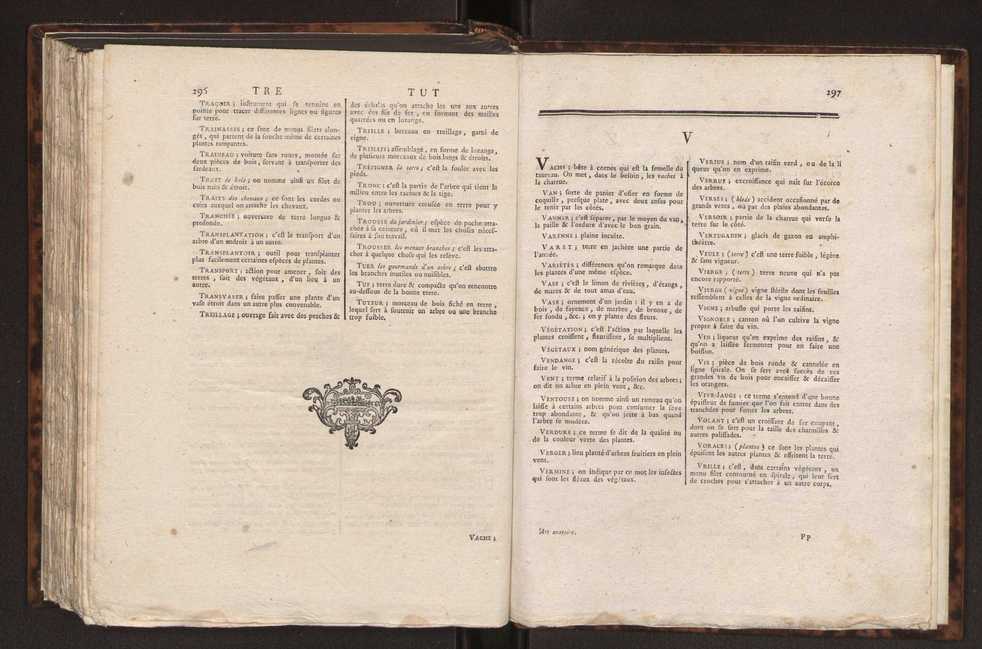 296 TRE TUT
TRAÇOIR ; instrument qui se termine en
pointe pour tracer différentes lignes ou figures
sur terre.
TRAINASSES ; ce sont de menus filets alon-
gés , qui partent de la souche même de certaines
plantes rampantes.
TRAINEAU ; voiture sans roues, montée sur
deux pièces de bois, servant à transporter des
fardeaux.
TRAIT de bois ; on nomme ainsi un filet de
bois mais & étroit.
TRAITS des chevaux ; ce sont les cordes ou
cuirs auxquel on attache les chevaux.
TRANCHÉE ; ouverture de terre longue &
profonde.
TRANSPLANTATION ; c'est le transport d'un
arbre d'un endroit à un autre.
TRANSPLANTOIR ; outil pour transplanter
plus facilement certaines espèces de plantes.
TRANSPORT ; action pour amener , soit des
terres , soit des végétaux , d'un lieu à un
autre.
TRANSVASER ; faire passer une plante d'un
vase étroit dans un autre plus convenable.
TREILLAGE ; ouvrage fait avec des perches &
des échalas qu'on attache les uns aux autres
avec des fils de fer , en formant des mailles
quarrées ou en lozange.
TREILLE ; berceau en treillage , garni de
vigne.
TREILLIS ; assemblage , en forme de lozange,
de plusieurs morceaux de bois longs & étroits.
TRÉPIGNER la terre ; c'est la fouler avec les
pieds.
TRONC ; c'est la partie de l'arbre qui tient le
milieu entre les racines & la tige.
TROU ; ouverture creusée en terre pour y
planter les arbres.
TROUSSE de jardinier ; espèce de poche atta-
chée à sa ceinture , où il met les choses néces-
saires à son travail.
TROUSSER les menues branches ; c'est les atta-
cher à quelque chose qui les relève.
TUER les gourmands d'un arbre ; c'est abattre
les branches inutiles ou nuisibles.
TUF ; terre dure & compacte qu'on rencontre
au-dessous de la bonne terre.
TUTEUR ; morceau de bois fiché en terre ,
lequel sert à soutenir un arbre ou une branche
trop foible.
VACHE ;
297
V
VACHE ; bête à cornes qui est la femelle du
taureau. On met , dans le besoin , les vaches à
la charrue.
VAN ; sorte de panier d'osier en forme de
coquille , presque plate , avec deux anses pour
le tenir par les côtés.
VANNER ; c'est séparer , par le moyen du van ,
la paille & l'ordure d'avec le bon grain.
VARENNE ; plaine inculte.
VARET ; terre en jachère une partie de
l'année.
VARIÉTÉS ; différences qu'on remarque dans
les plantes d'une même espèce.
VASE ; c'est le limon de rivières , d'étangs ,
de mares & de tout amas d'eau.
VASE ; ornement d'un jardin : il y en a de
bois , de fayence , de marbre , de bronze , de
fer fondu , &c. ; on y plante des fleurs.
VÉGÉTATION ; c'est l'action par laquelle les
plantes croissent , fleurissent , se multiplient.
VÉGÉTAUX ; nom générique des plantes.
VENDANGE ; c'est la récolte du raisin pour
faire le vin.
VENT ; terme relatif à la position des arbres ;
on dit un arbre en plein vent , &c.
VENTOUSE ; on nomme ainsi un rameau qu'on
laisse à certains arbres pour consumer la sève
trop abondante , & qu'on jette à bas quand
l'arbre se modère.
VERDURE ; ce terme se dit de la qualité ou
de la couleur verte des plantes.
VERGER ; lieu planté d'arbres fruitiers en plein
vent.
VERMINE ; on indique par ce mot les insectes
qui sont les fléaux des végétaux.
VERJUS ; nom d'un raisin verd , ou de la li
queur qu'on en exprime.
VERRUE ; excroissance qui naît sur l'écorce
des arbres.
VERSÉS ; (bleds) accident occasionné par de
grands vents , ou par des pluies abondantes.
VERSOIR ; partie de la charrue qui verse la
terre sur le côté.
VERTUGADIN ; glacis de gazon en amphi-
théâtre.
VEULE ; (terre) c'est une terre foible , légère
& sans vigueur.
VIERGE ; (terre) terre neuve qui n'a pas
encore rapporté.
VIERGE (vigne) vigne stérile dont les feuilles
ressemblent à celles de la vigne ordinaire.
VIGNE ; arbuste qui porte les raisins.
VIGNOBLE ; canton où l'on cultive la vigne
propre à faire du vin.
VIN ; liqueur qu'on exprime des raisins , &
qu'on a laissée fermenter pour en faire une
boisson.
VIS ; pièce de bois ronde & cannelée en
ligne spirale. On se sert avec succès de ces
grandes vis de bois pour encaisser & décaisser
les orangers.
VIVE-JAUGE ; ce terme s'entend d'une bonne
épaisseur de fumier que l'on fait entrer dans des
tranchées pour fumer les arbres.
VOLANT ; c'est un croissant de fer coupant ,
dont on se sert pour la taille des charmilles &
autres palissades.
VORACES ; (plantes) ce sont les plantes qui
épuisent les autres plantes & effritent la terre.
VRILLE ; c'est , dans certains végétaux , un
menu filet contourné en spirale , qui leur sert
de crochet pour s'attacher à un autre corps.
Art aratoire. Pp